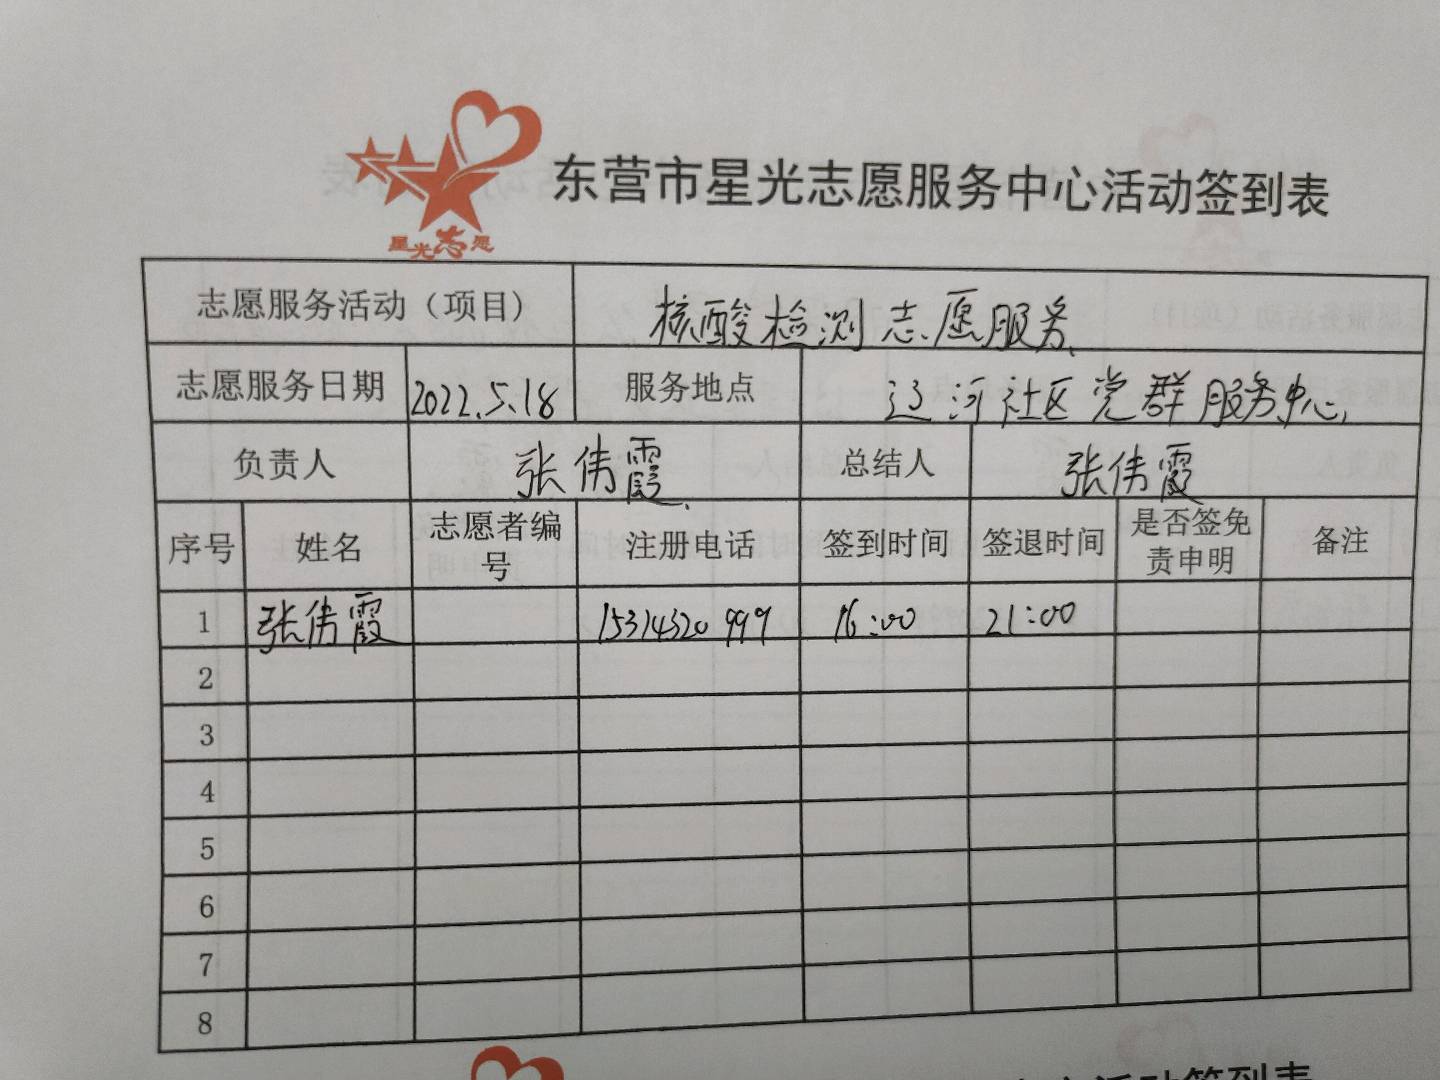 星光志愿
东营市星光志愿服务中心活动签到表
志愿服务活动（项目） 核酸检测志愿服务
志愿服务日期 2022.5.18 服务地点 辽河社区党群服务中心
负责人 张伟霞 总结人 张伟霞
序号 姓名 志愿者编号 注册电话 签到时间 签退时间 是否签免责申明 备注
1 张伟霞 15314320999 16:00 21:00
2
3
4
5
6
7
8
活动签到表